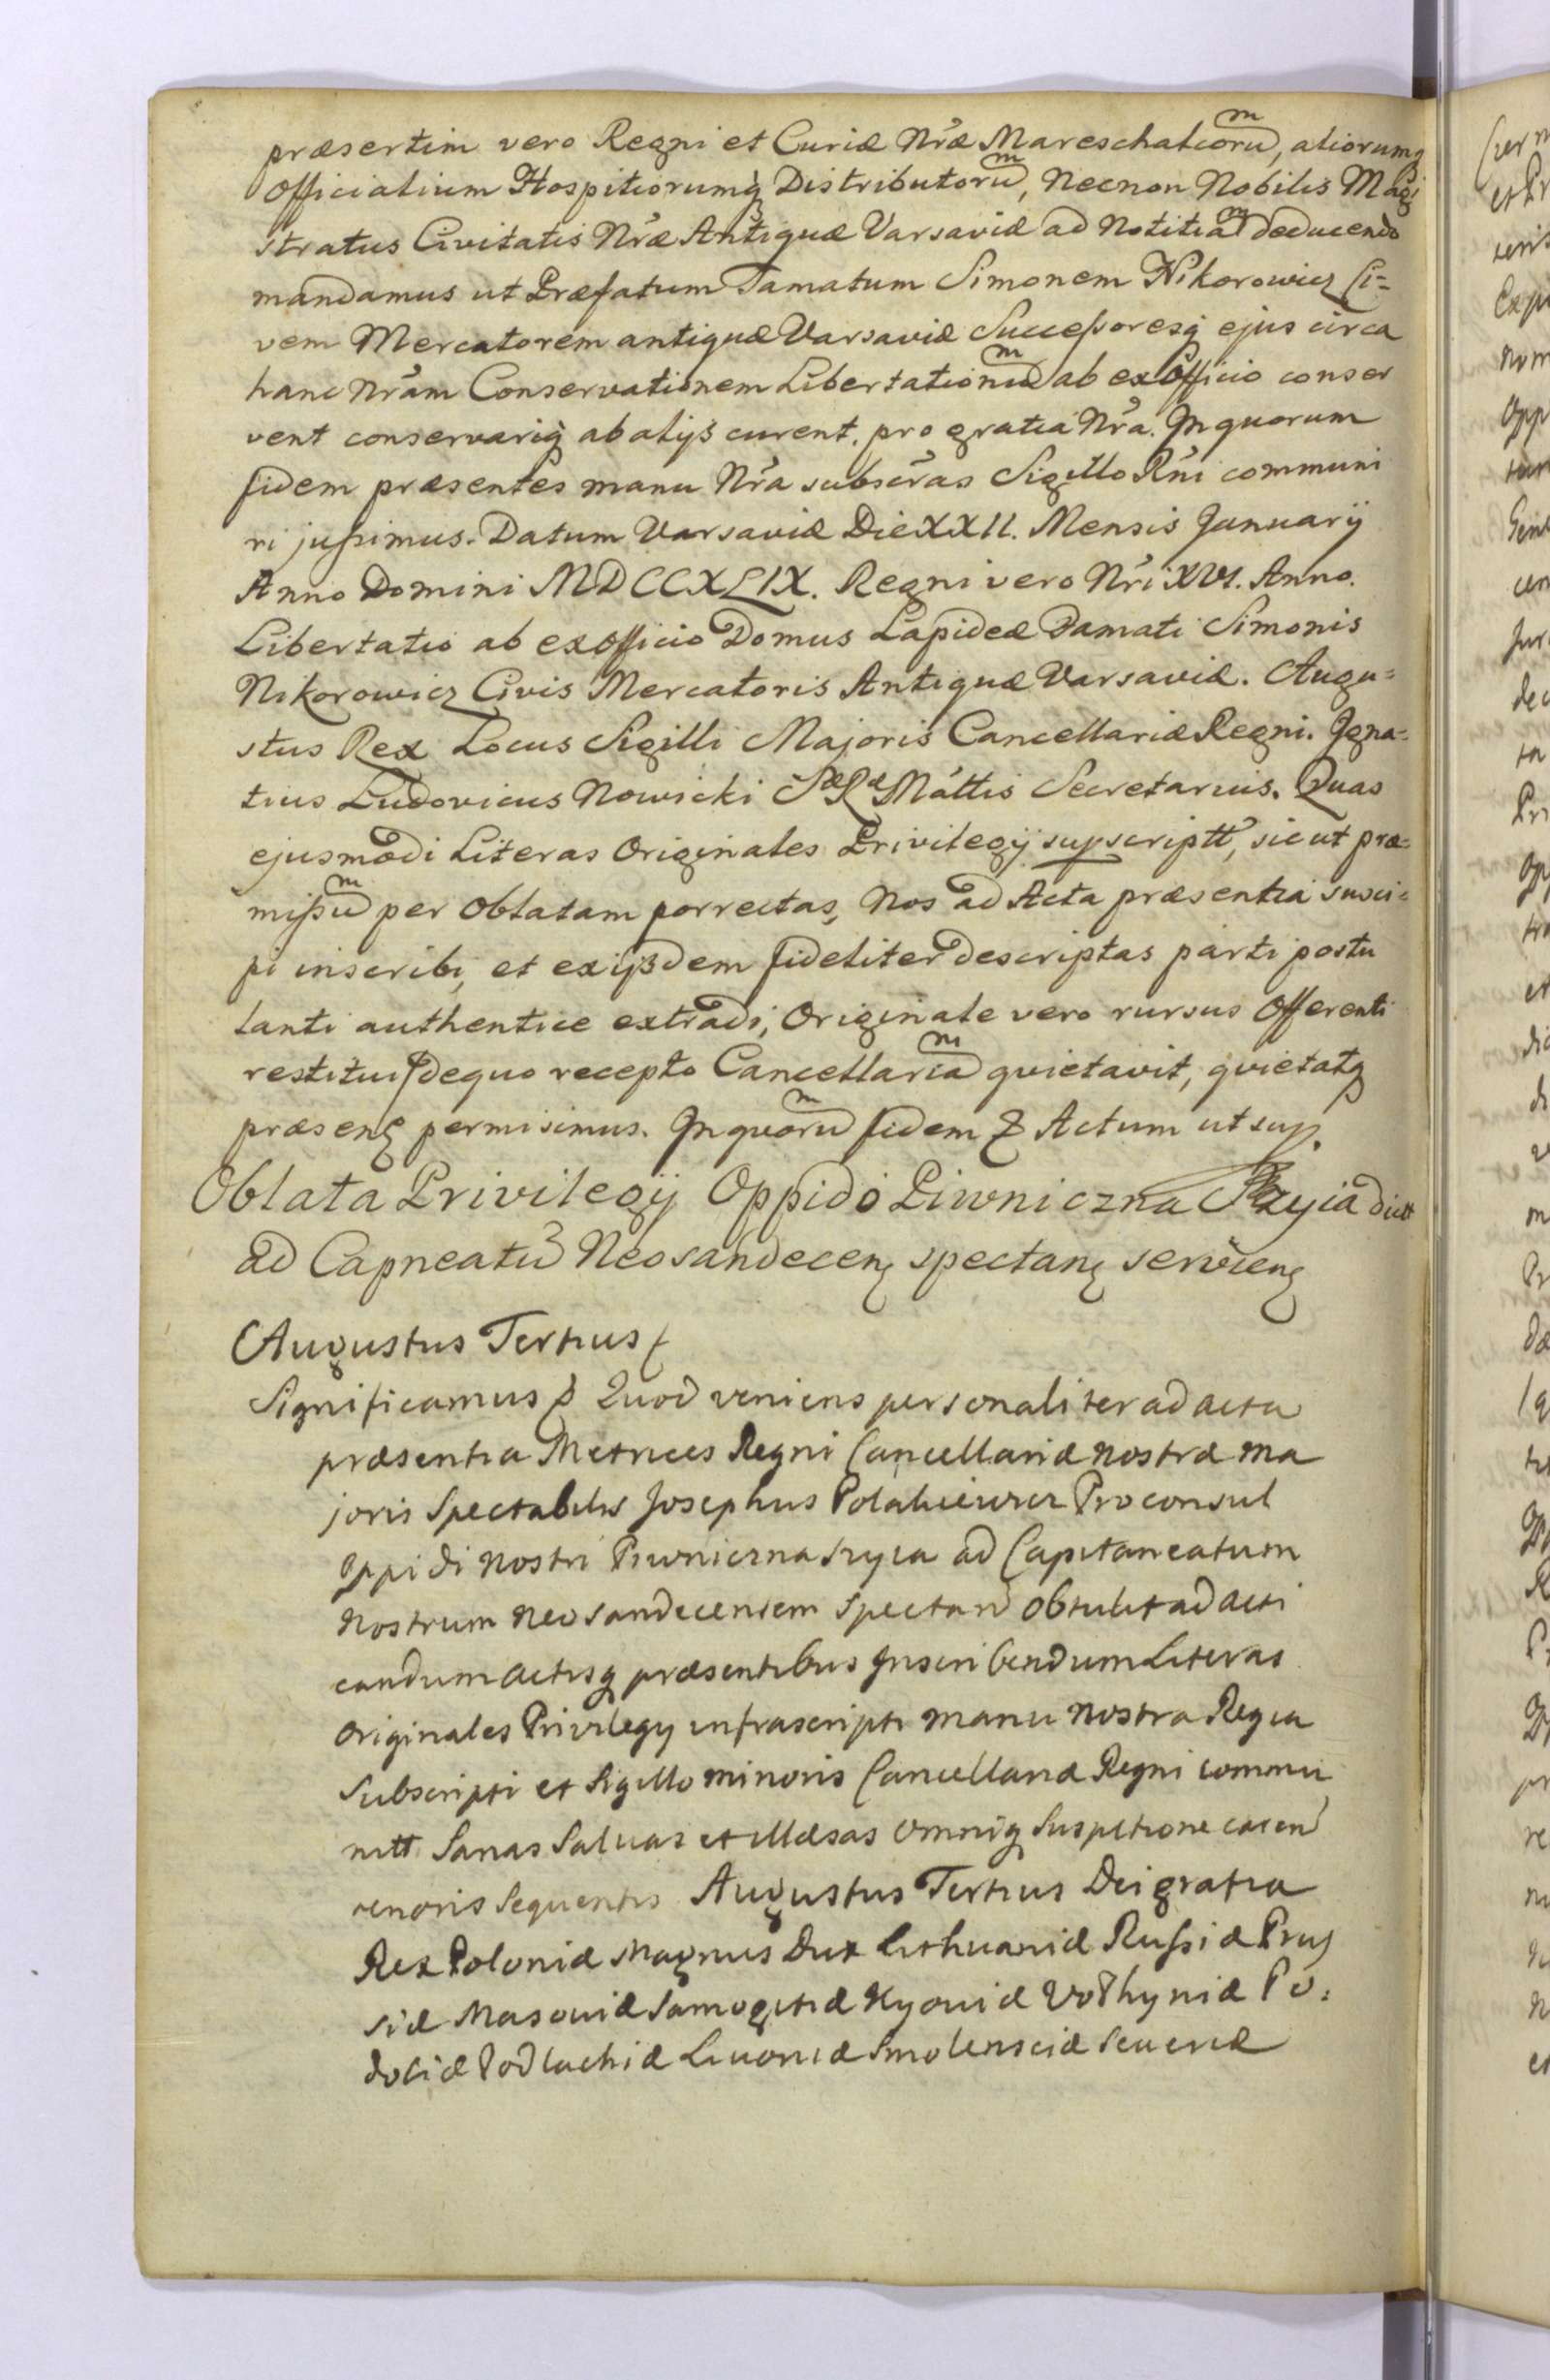 præsertim vero Regni et Curiæ Nræ Mareschalcorum, aliorumq
Officialium Hospitiorumq Distributorum, Necnon Nobilis Magi
stratus Civitatis Nræ Antiquæ Varsaviæ ad Notitiam deducendo
mandamus ut Præfatum Famatum Simonem Nikorowicz Ci=
vem Mercatorem antiquæ Varsaviæ Successoresq ejus circa
hanc Nram Conservationem Libertationem ab ex Officio conser
vent conservariq ab alijs curent, pro gratia Nra. In quorum
fidem præsentes manu Nra subscras Sigillo Rni communi
ri jussimus. Datum Varsaviæ Die XXII. Mensis Januarij
Anno Domini MDCCXLIX. Regni vero Nri XVI. Anno.
Libertatio ab ex Officio Domus Lapideæ Famati Simonis
Nikorowicz Civis Mercatoris Antiquæ Varsaviæ. Augu=
stus Rex Locus Sigilli Majoris Cancellariæ Regni. Igna=
tius Ludovicus Nowicki Sæ Ræ Mattis Secretarius. Quas
ejusmodi Literas Originales Privilegij supscriptt, sic ut præ=
missum per Oblatam porrectas, Nos ad Acta præsentia susci=
pi inscribi, et ex ijsdem fideliter descriptas parti postu
lanti authentice extradi, Originale vero rursus Offerenti
restitui de quo recepto Cancellariam quietavit, quietatq
præsen permisimus. In quorum fidem Actum ut sup.
Oblata Privilegij Oppido Piwniczna Szyia dictt
ad Capneatū Neosandecen spectan servien
Augustus Tertius
Significamus Quod veniens personaliter ad acta
præsentia Metrices Regni Cancellariæ nostræ ma
joris Spectabilis Josephus Polakiewicz Proconsul
Oppidi nostri Piwniczna Szyia ad Capitaneatum
Nostrum Neosandecensem Spectan Obtulit ad acti
candum actisq præsentibus Inscribendum Literas
Originales Privilegy infrascripti manu nostra Regia
Subscripti et Sigillo minoris Cancellariæ Regni commu
nitt Sanas Salvas et illæsas omniq Suspitione caren
tenoris Sequentis Augustus Tertius Dei gratia
Rex Poloniæ Magnus Dux Lithuaniæ Russiæ Prus
siæ Masoviæ Samogitiæ Kyoviæ Volhyniæ Po:
doliæ Podlachiæ Livoniæ Smolensciæ Severiæ